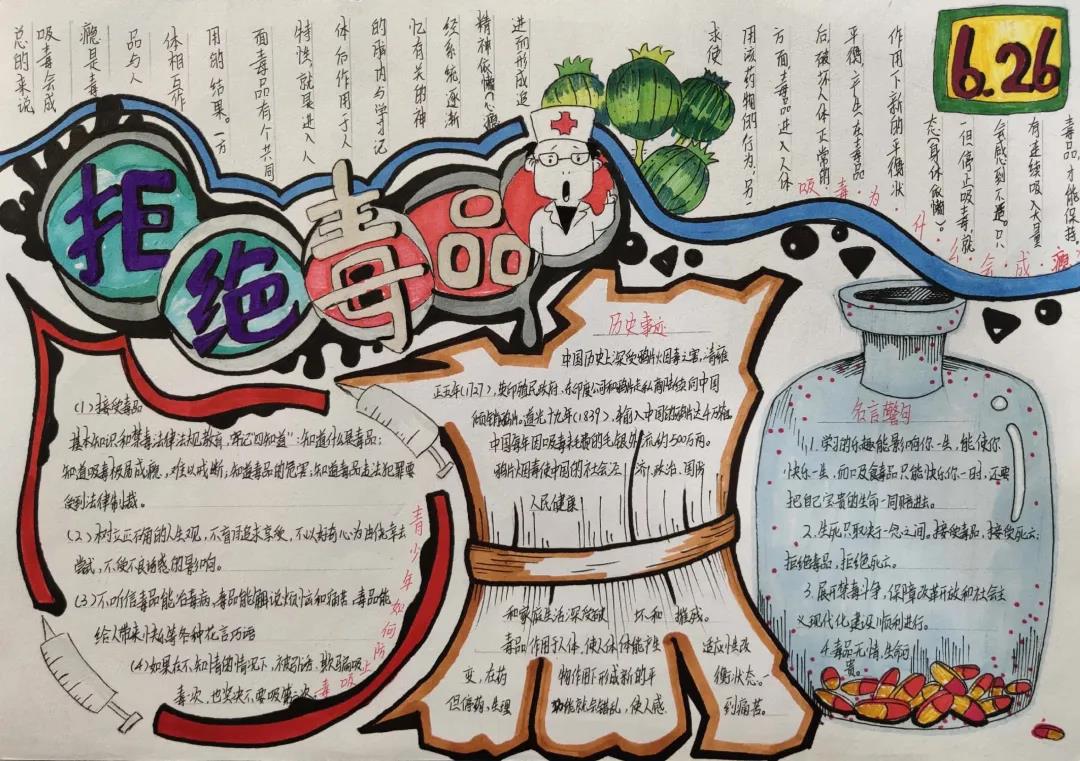 6.26
吸毒为什么会成瘾
总的来说
吸毒会成
瘾是毒
品与人
体相互作
用的结果。一方
面毒品有个共同
特性,就是进入人
体后作用于人
的脑内与学习记
忆有关的神
经系统,逐渐
精神依懒心瘾
进而形成追
求使
用该药物的行为,另
方面,毒品进入人体
后,破坏人体正常的
平衡,产生在毒品
作用下新的平衡状
态,身体依懒。
一但停止吸毒,就
会感到不适。只
有连续吸入大量
毒品,才能保持。
拒绝毒品
(1)接受毒品
基本知识和禁毒法律法规教育,牢记"四知道":知道什么是毒品;
知道吸毒极易成瘾,难以戒断;知道毒品的危害;知道毒品违法犯罪要
受到法律制裁。
(2)树立正确的人生观,不盲目追求享受,不以好奇心为由侥幸去
尝试,不受不良诱惑的影响。
(3)不听信毒品能治毒病,毒品能解脱烦恼和痛苦,毒品能
给人带来快乐等各种花言巧语
(4)如果在不知情的情况下,被引诱、欺骗吸
毒一次,也坚决不要吸第二次
青少年如何防止吸毒
历史事迹
中国历史上深受鸦片烟毒之害,清雍
正五年(1727),英印殖民政府、东印度公司和鸦片走私商陆续向中国
倾销鸦片。道光十九年(1839),输入中国的鸦片达4万箱
中国每年因吸毒耗费的毛银外流约500万两。
鸦片烟毒使中国的社会经济、政治、国防
人民健康
和家庭生活深受破坏和摧残。
毒品作用于人体,使人体体能产生适应性改
变,在药物作用下形成新的平衡状态。一
但停药,生理功能就会错乱,使人感到痛苦。
名言警句
1.学习的乐趣能影响你一生,能使你
快乐一生,而吸食毒品只能快乐你一时,还要
把自己宝贵的生命一同赔进去。
2.生死只取决于一念之间。接受毒品,接受死亡;
拒绝毒品,拒绝死亡。
3.展开禁毒斗争,保障改革开放和社会主
义现代化建设顺利进行。
4.毒品无情,生命可
贵。